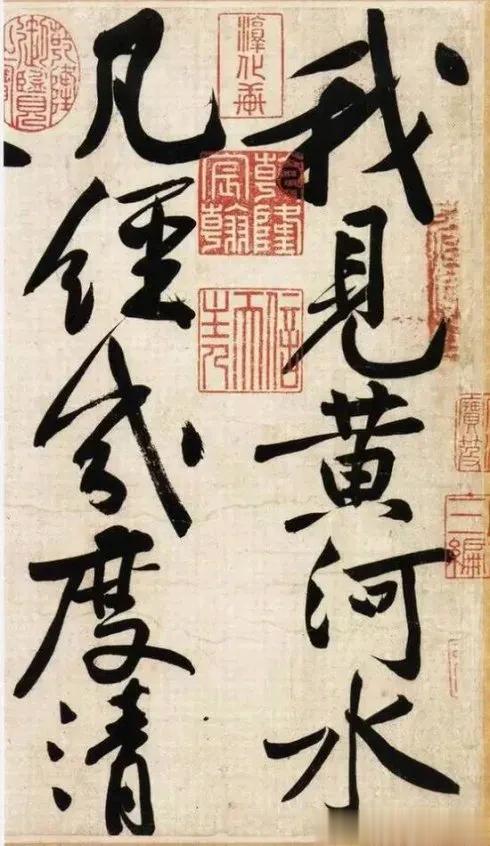 我見黄河水
凡經幾度清
淳化軒
乾隆宸翰
信天主人
寶笈
三編
乾隆御覽之寶